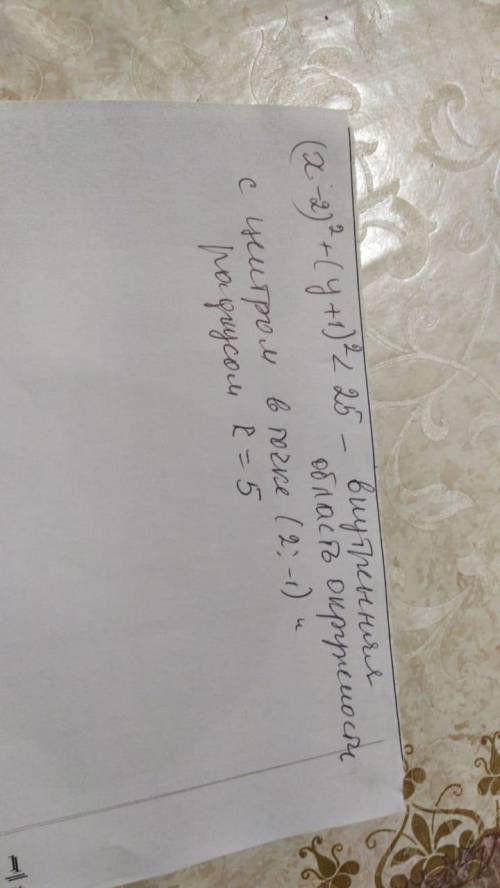 (x-2)²+(y+1)²< 25 – внутренняя
область окружности
с центром в точке (2; -1) и
радиусом R = 5